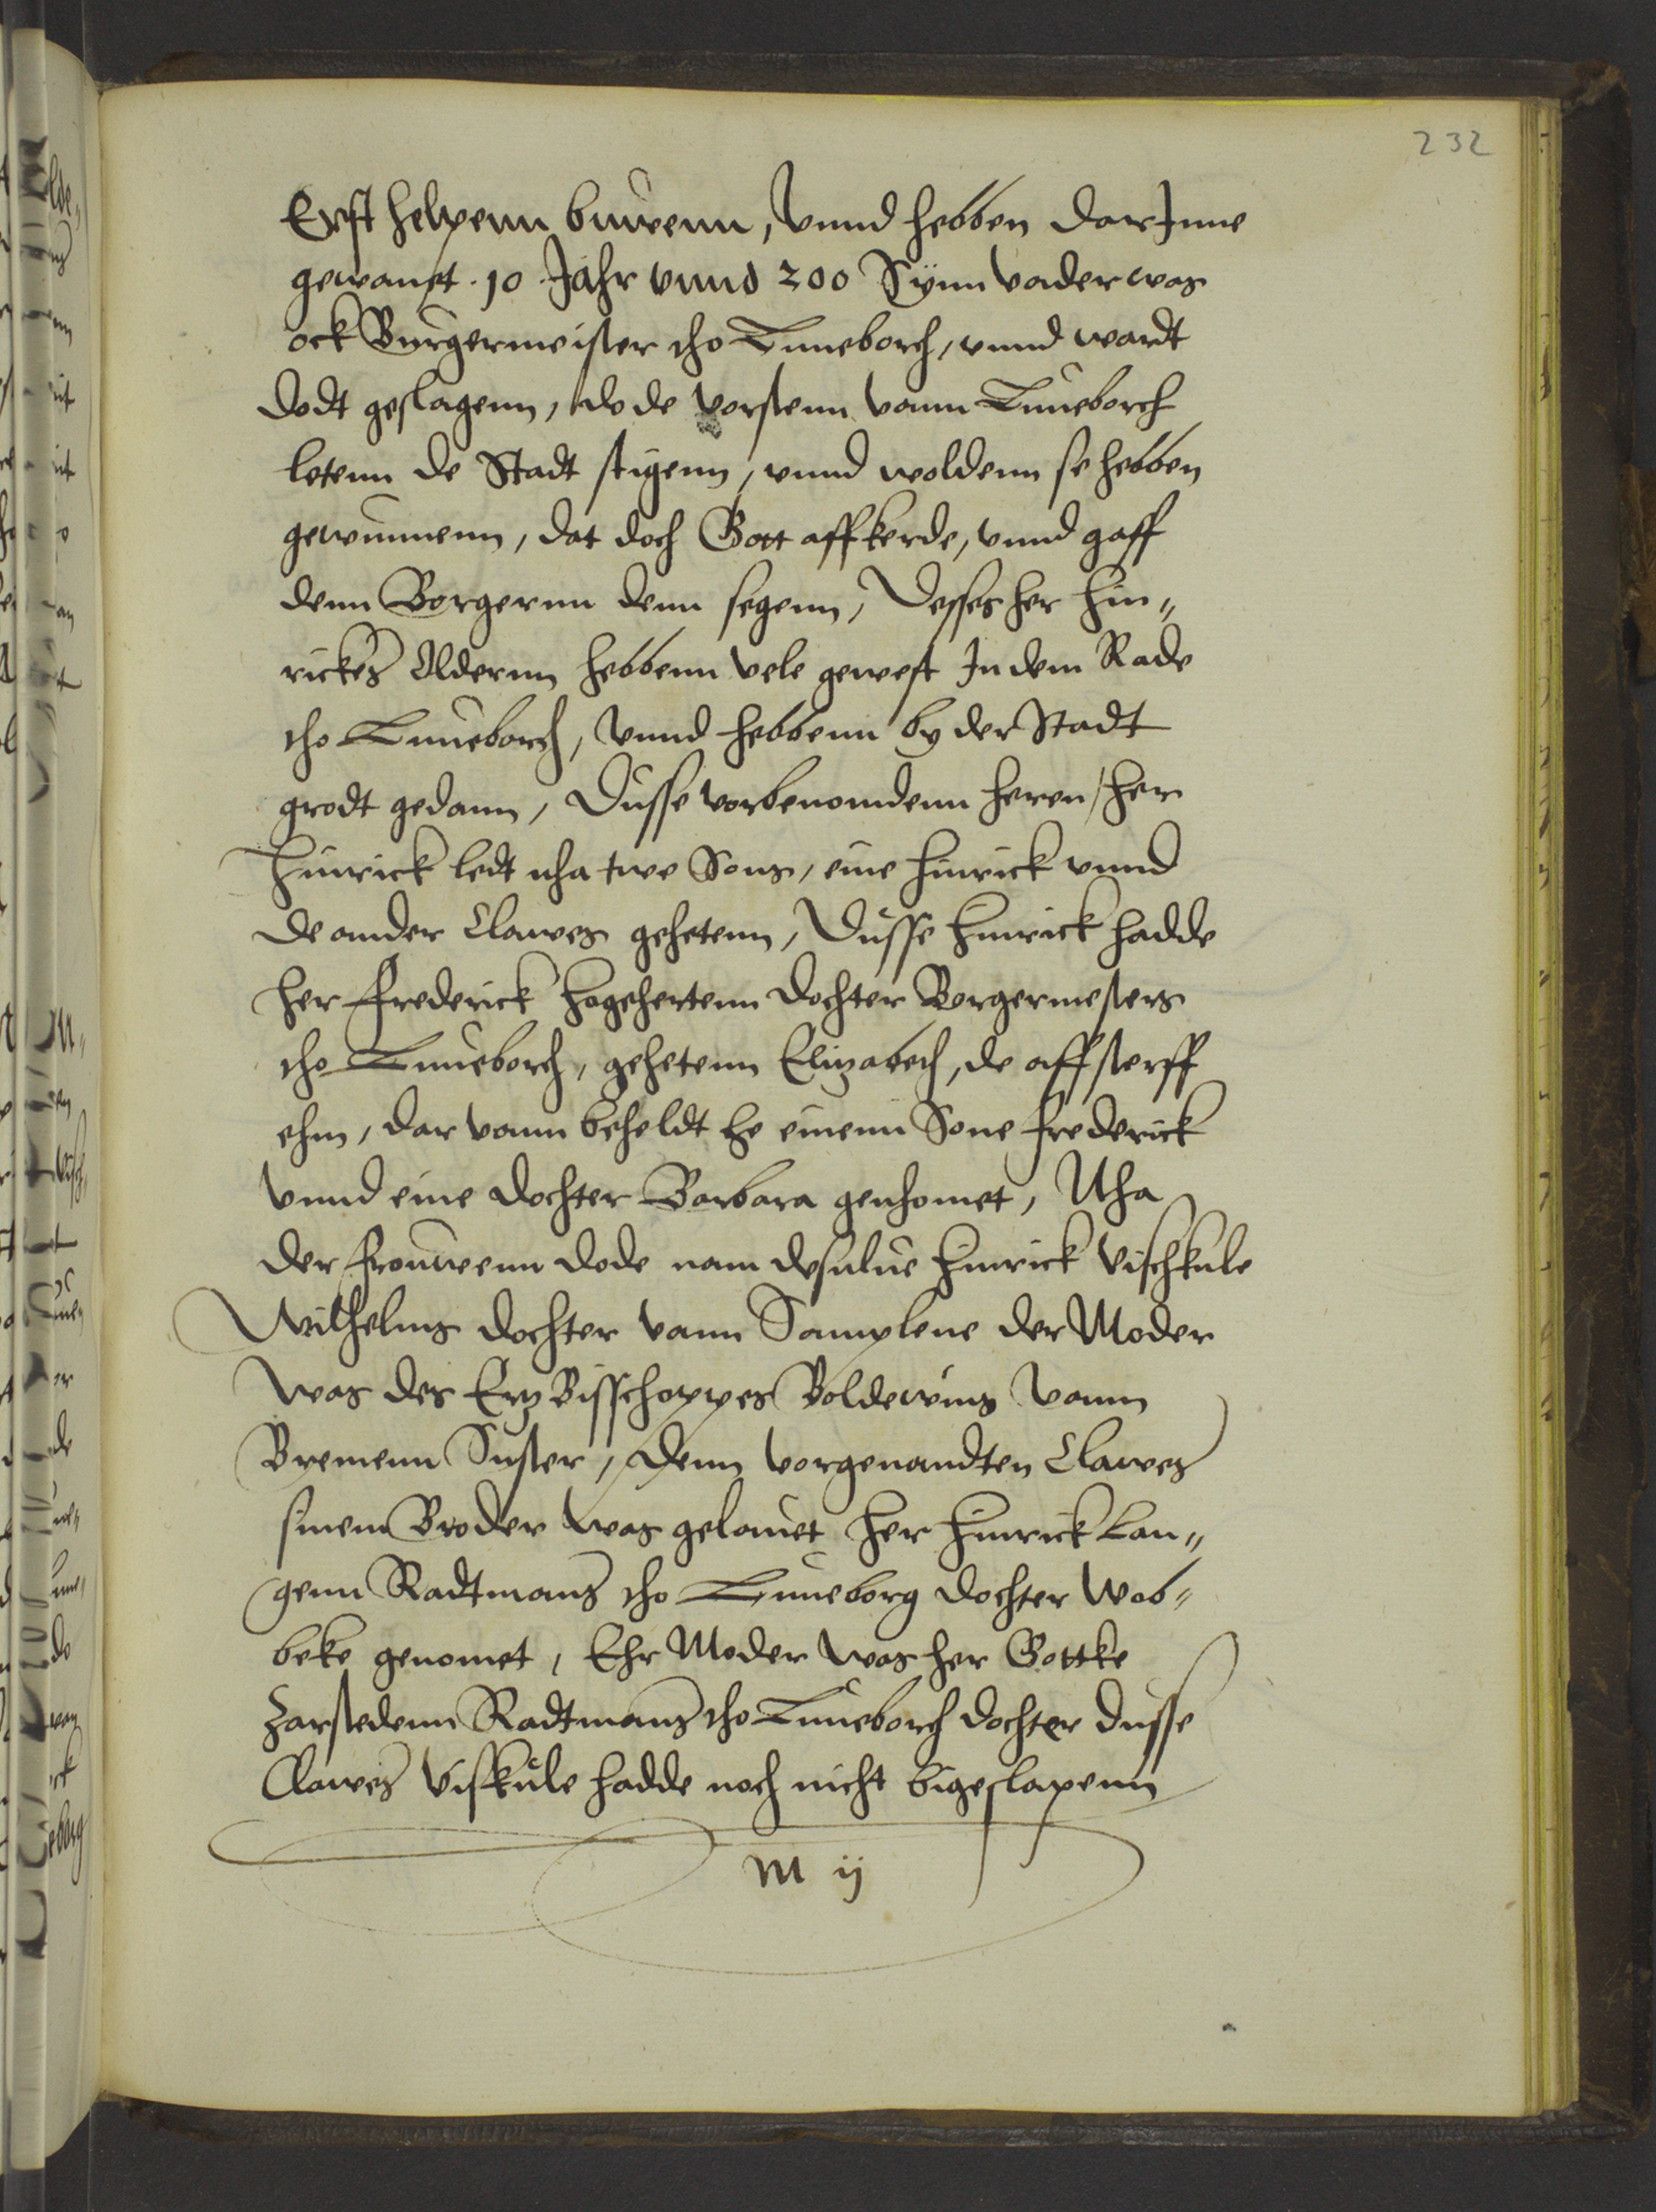 232
Erst helpenn buwenn, Vnnd hebben darJnne
gewanet. 10. Jahr vnnd 200 Synn vader was
ock Burgermeister tho Luneborch, vnnd wardt
dodt geslagenn, do de vorstenn vann Luneborch
letenn de Stadt stigenn, vnnd woldenn se hebben
gewunnenn, dat doch Gott affkerde, vnnd gaff
denn Borgernn denn segenn, Desses her Hin„
rickes Oldernn hebbenn vele gewest Jn dem Rade
tho Luneborch, Vnnd hebbenn by der Stadt
grodt gedann, Dusse vorbenomdenn heren, her
Hinrick ledt nha twe Sons, eine Hinrick vnnd
de ander Clawes gehetenn, Dusse Hinrick hadde
her Frederick Hogehertenn dochter Borgermesters
tho Luneborch, gehetenn Elizabeth, de affsterff
ehm, dar vann beheldt he einenn Sone Frederick
vnnd eine dochter Barbara genhomet, Nha
der frouwenn dode nam desulue Hinrick Vischkule
Wilhelms dochter vann Samplene der Moder
was des Ertz Bisschoppes Boldewins vann
Bremenn Suster, denn vorgenandten Clawes
sinem Broder was gelauet her Hinrick Lan„
genn Radtmans tho Luneborg dochter Wob„
beke genomet, Ehr Moder was her Gottke
Zarstedenn Radtmans tho Luneborch dochter dusse
Clawes Viskule hadde noch nicht bigeslapenn
M ij